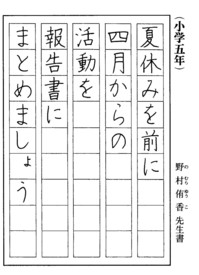 (小学五年)
野村侑香先生書
の むら ゆう こ
夏休みを前に
四月からの
活動を
報告書に
まとめましょう